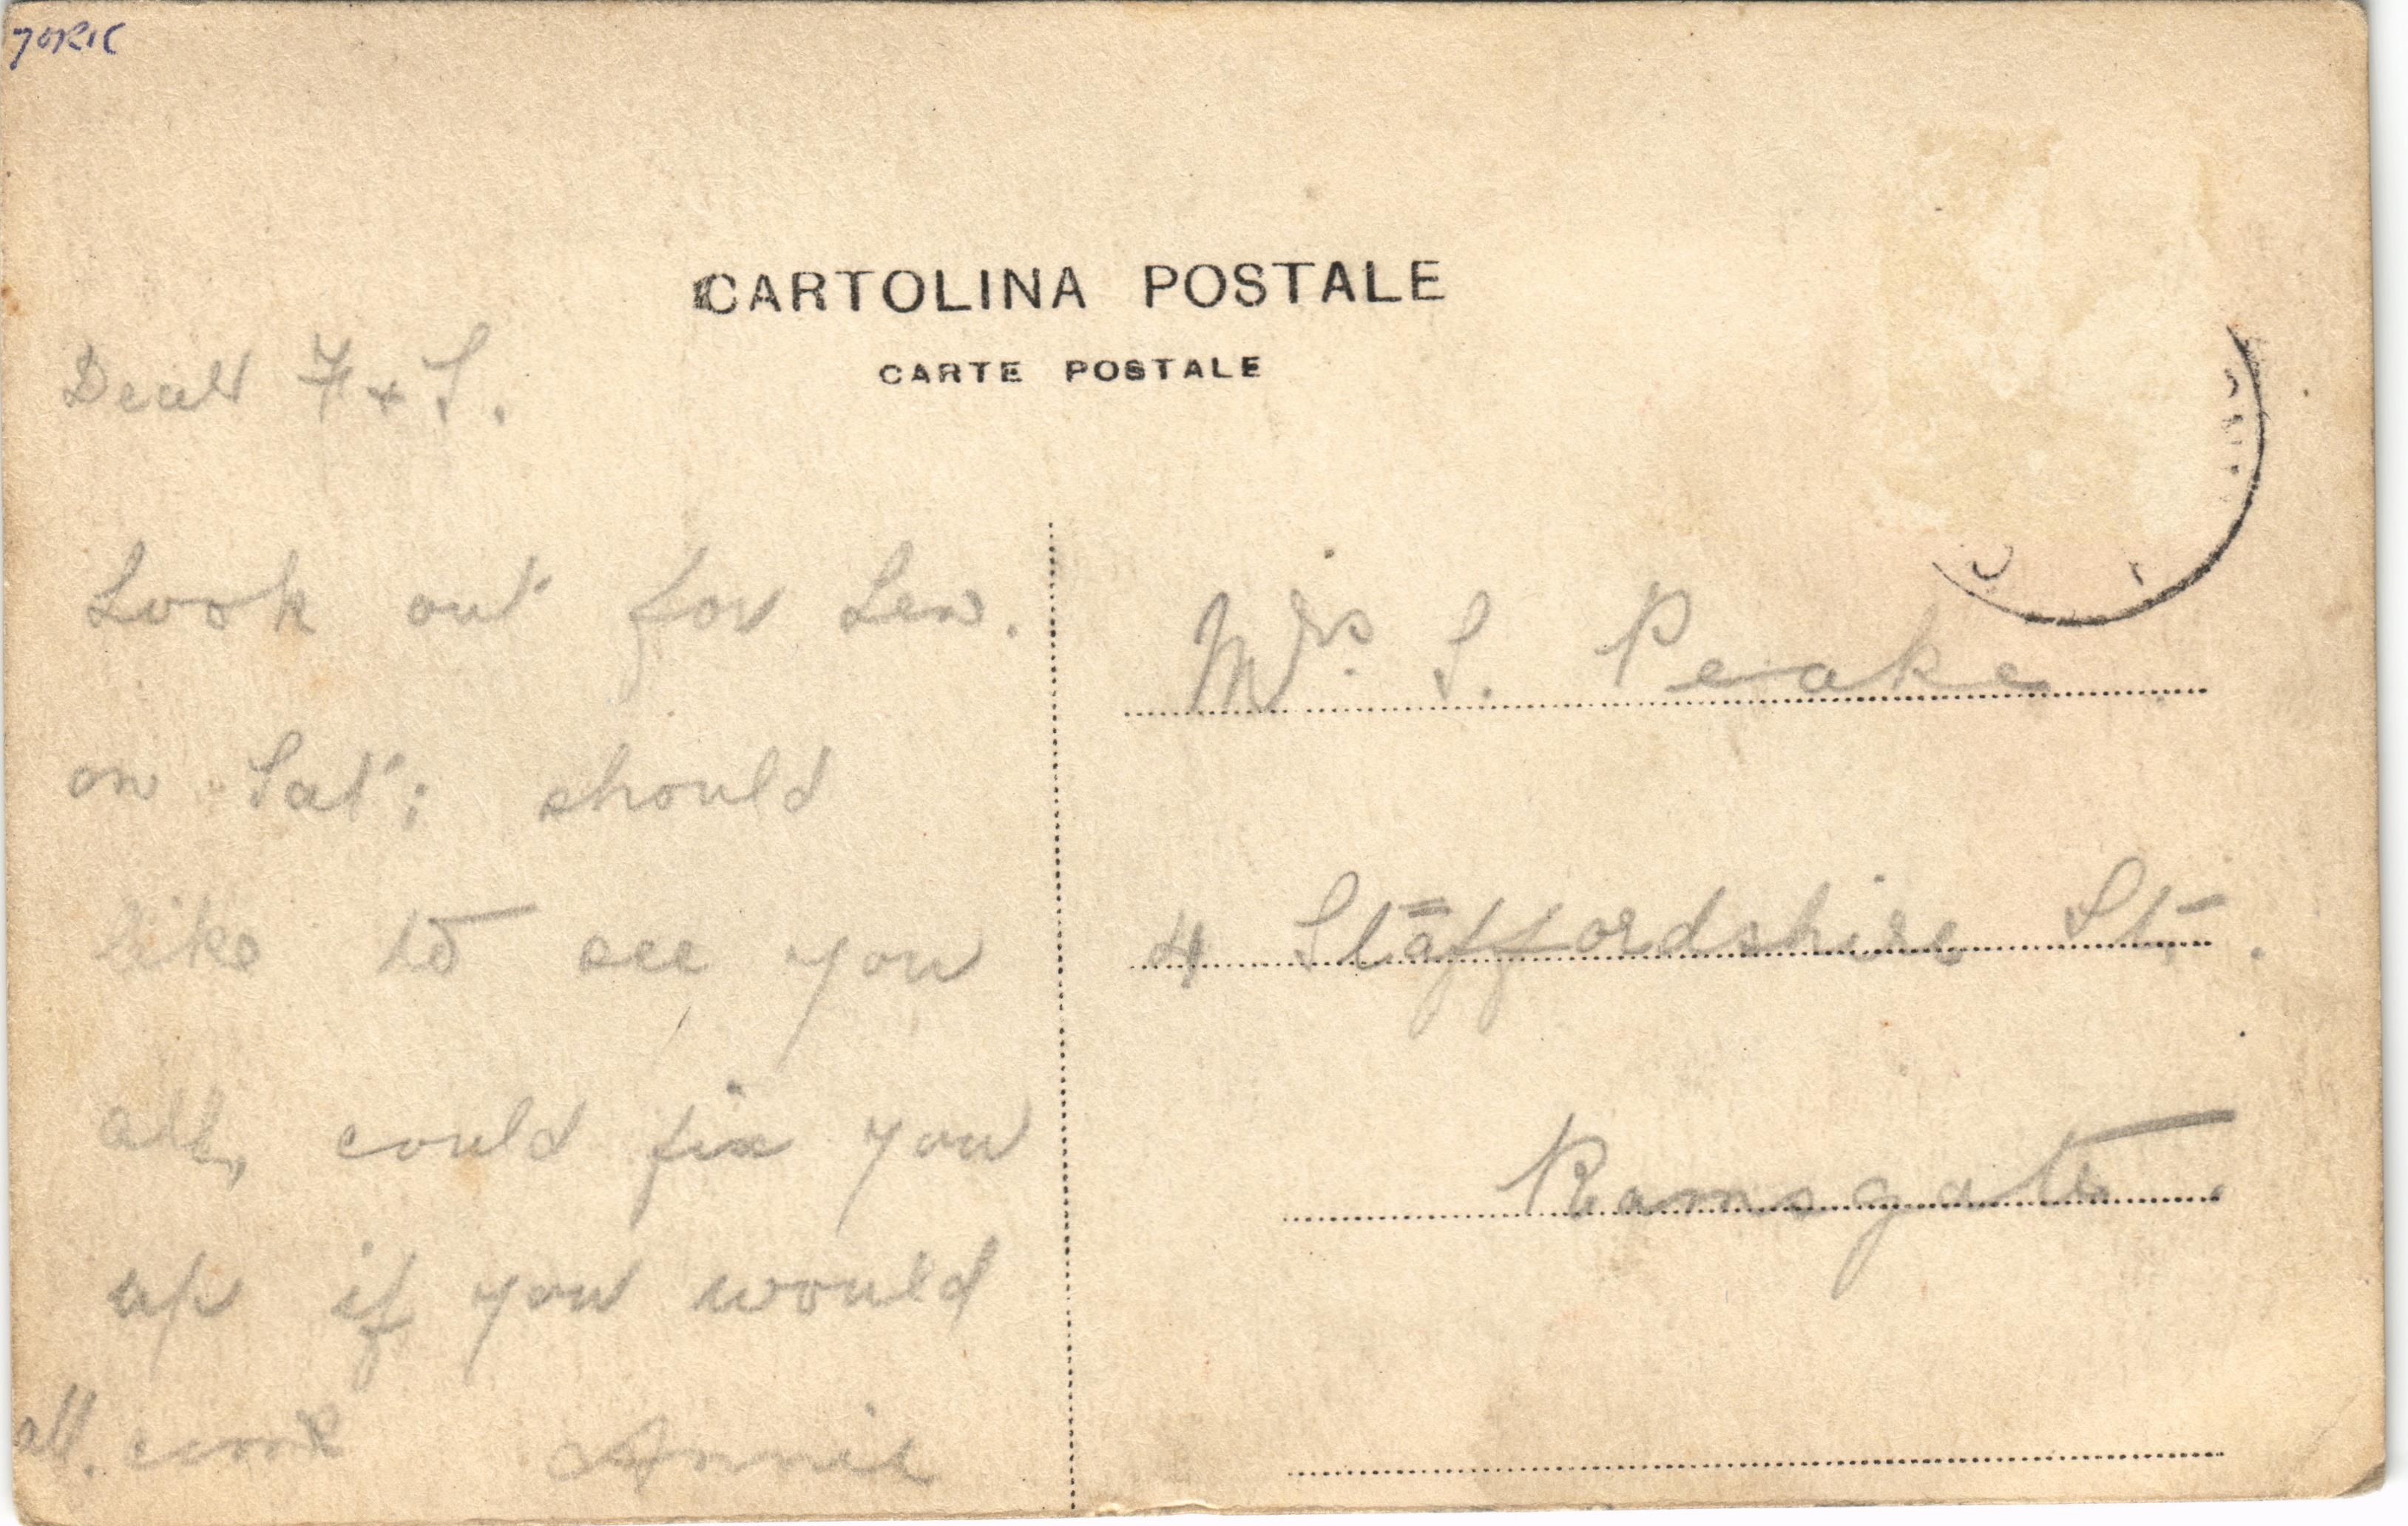 YORIC
CARTOLINA POSTALE
CARTE POSTALE
Dear F + S.
Look out for Len.
on Sat; should
like to see you
all, could fix you
up if you would
all. come Annie
Mrs. S. Peake
4 Staffordshire St.
Ramsgate.